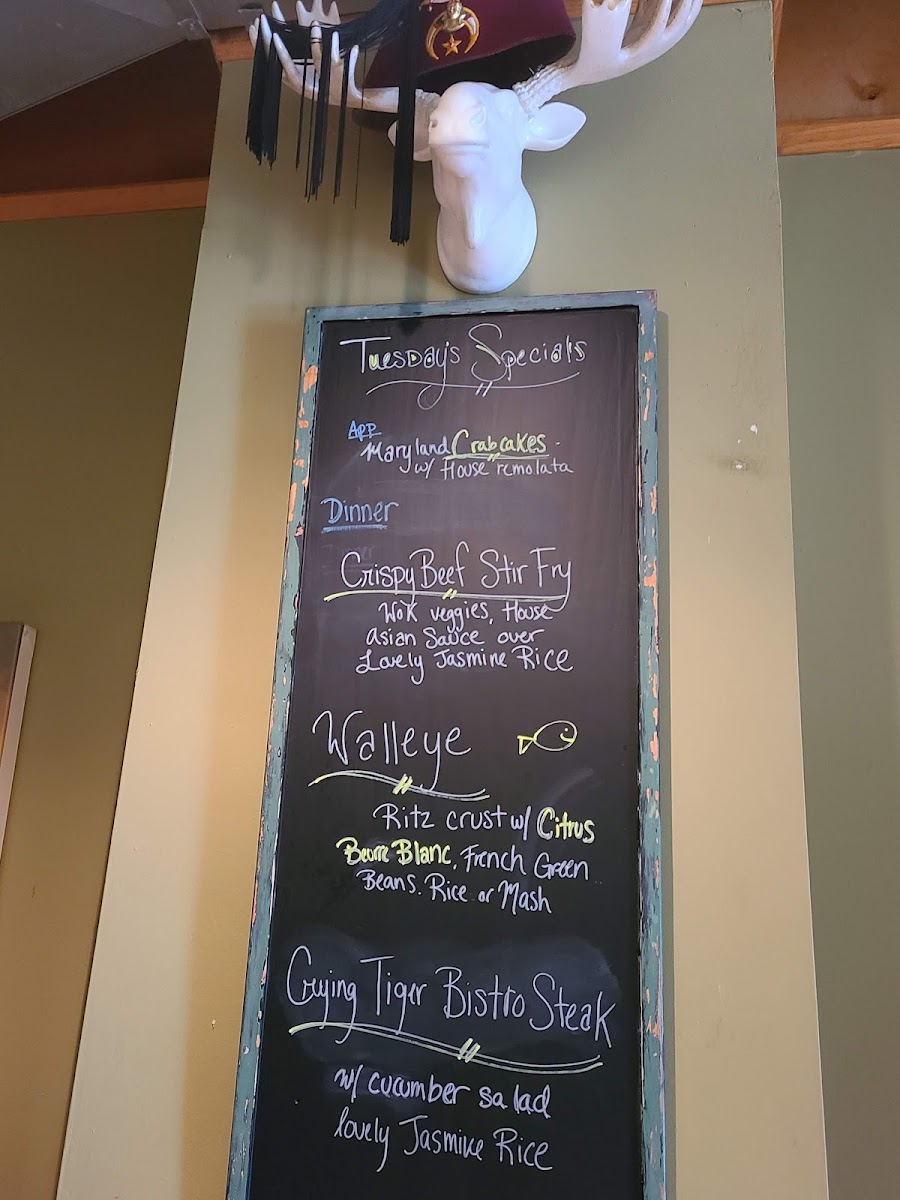 Tuesday's Specials
App
Maryland Crabcakes
w/ House remolata
Dinner
Crispy Beef Stir Fry
Wok veggies, House
Asian Sauce over
Lovely Jasmine Rice
Walleye
Ritz crust w/ Citrus
Beurre Blanc, French Green
Beans. Rice or Mash
Crying Tiger Bistro Steak
w/ cucumber salad
lovely Jasmine Rice